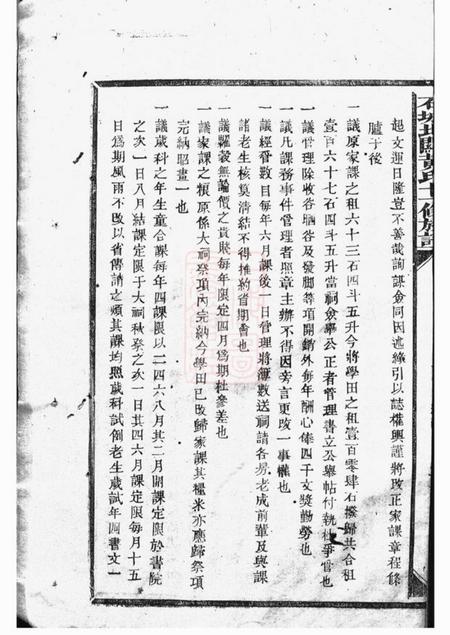 起文運日隆豈不善哉詢謀僉同因述緣引以誌權輿謹將改正家課章程條
臚于後
一議原家課之租六十三石四斗五升今將學田之租壹百零肆石撥歸共合租
壹百六十七石四斗五升當祠僉舉公正者管理書立公舉帖付執杜爭官也
一議管理除收谷晒谷及發腳等項開銷外每年酬心俸四千文獎勤勞也
一議凡課務事件管理者照章主辦不得因旁言更改一事權也
一議經眷數目每年六月課後一日管理將簿數送祠請各房老成前輩及與課
諸老生核算清結不得推約省期會也
一議糶穀無論價之貴賤每年限定四月為期杜參差也
一議家課之糧原係大祠祭項內完納今學田已改歸家課其糧米亦應歸祭項
完納昭畫一也
一議歲科之年生童合課每年四課限以二四六八月其二月開課定限於書院
之次一日八月結課定限于大祠秋祭之次一日其四六月課定限每月十五
日為期風雨不改以省傳請之煩其課均照歲科試例老生歲試年四書文一